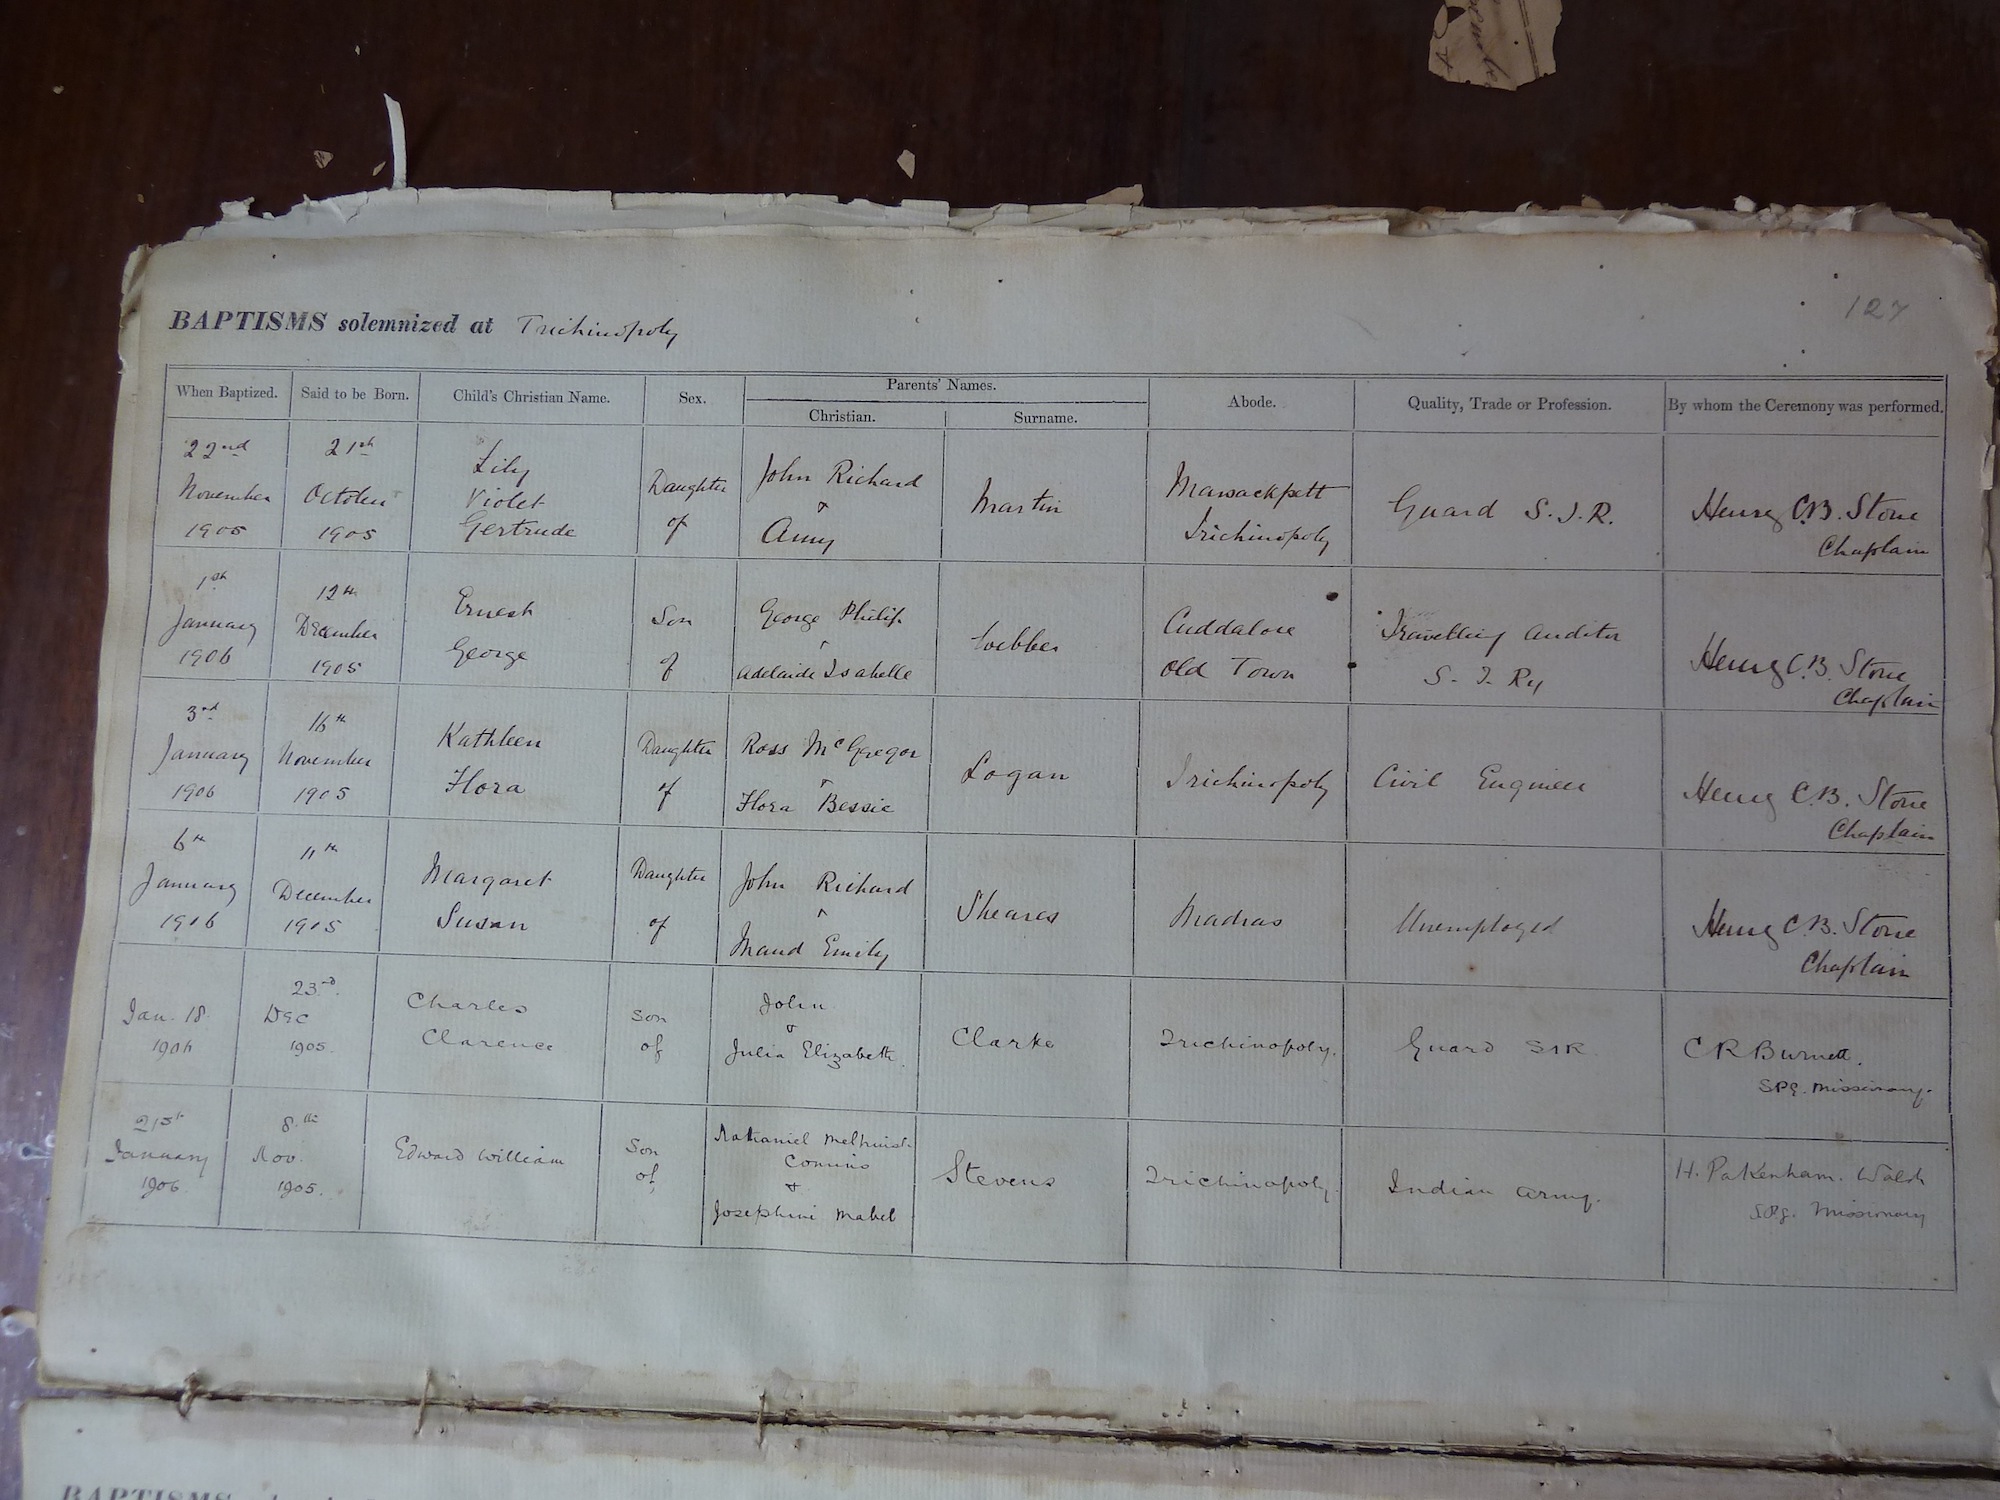 127
BAPTISMS solemnized at Trichinopoly
When Baptized. Said to be Born. Child's Christian Name. Sex. Parents' Names. Abode. Quality, Trade or Profession. By whom the Ceremony was performed.
Christian. Surname.
22nd November 1905
21st October 1905
Lily Violet Gertrude
Daughter of
John Richard & Amy
Martin
Trichinopoly
Guard S.I.R.
Henry C.B. Stone Chaplain
1st January 1906
12th December 1905
Ernest George
Son of
George Philip & Adelaide Isabelle
Webber
Cuddalore Old Town
Travelling Auditor S. I. Ry
Henry C.B. Stone Chaplain
3rd January 1906
16th November 1905
Kathleen Flora
Daughter of
Ross McGregor & Flora Bessie
Logan
Trichinopoly
Civil Engineer
Henry C.B. Stone Chaplain
6th January 1906
11th December 1905
Margaret Susan
Daughter of
John Richard & Maud Emily
Sheares
Madras
Unemployed
Henry C.B. Stone Chaplain
Jan. 18 1906
23rd Dec 1905.
Charles Clarence
Son of
John & Julia Elizabeth.
Clarke
Trichinopoly.
Guard SIR
C R Burnett. SPG. Missionary.
21st January 1906
8th Nov. 1905.
Edward William
Son of
Nathaniel Melhuish Comins & Josephine Mabel
Stevens
Trichinopoly.
Indian Army.
H. Pakenham. Walsh SPG. Missionary
BAPTISMS